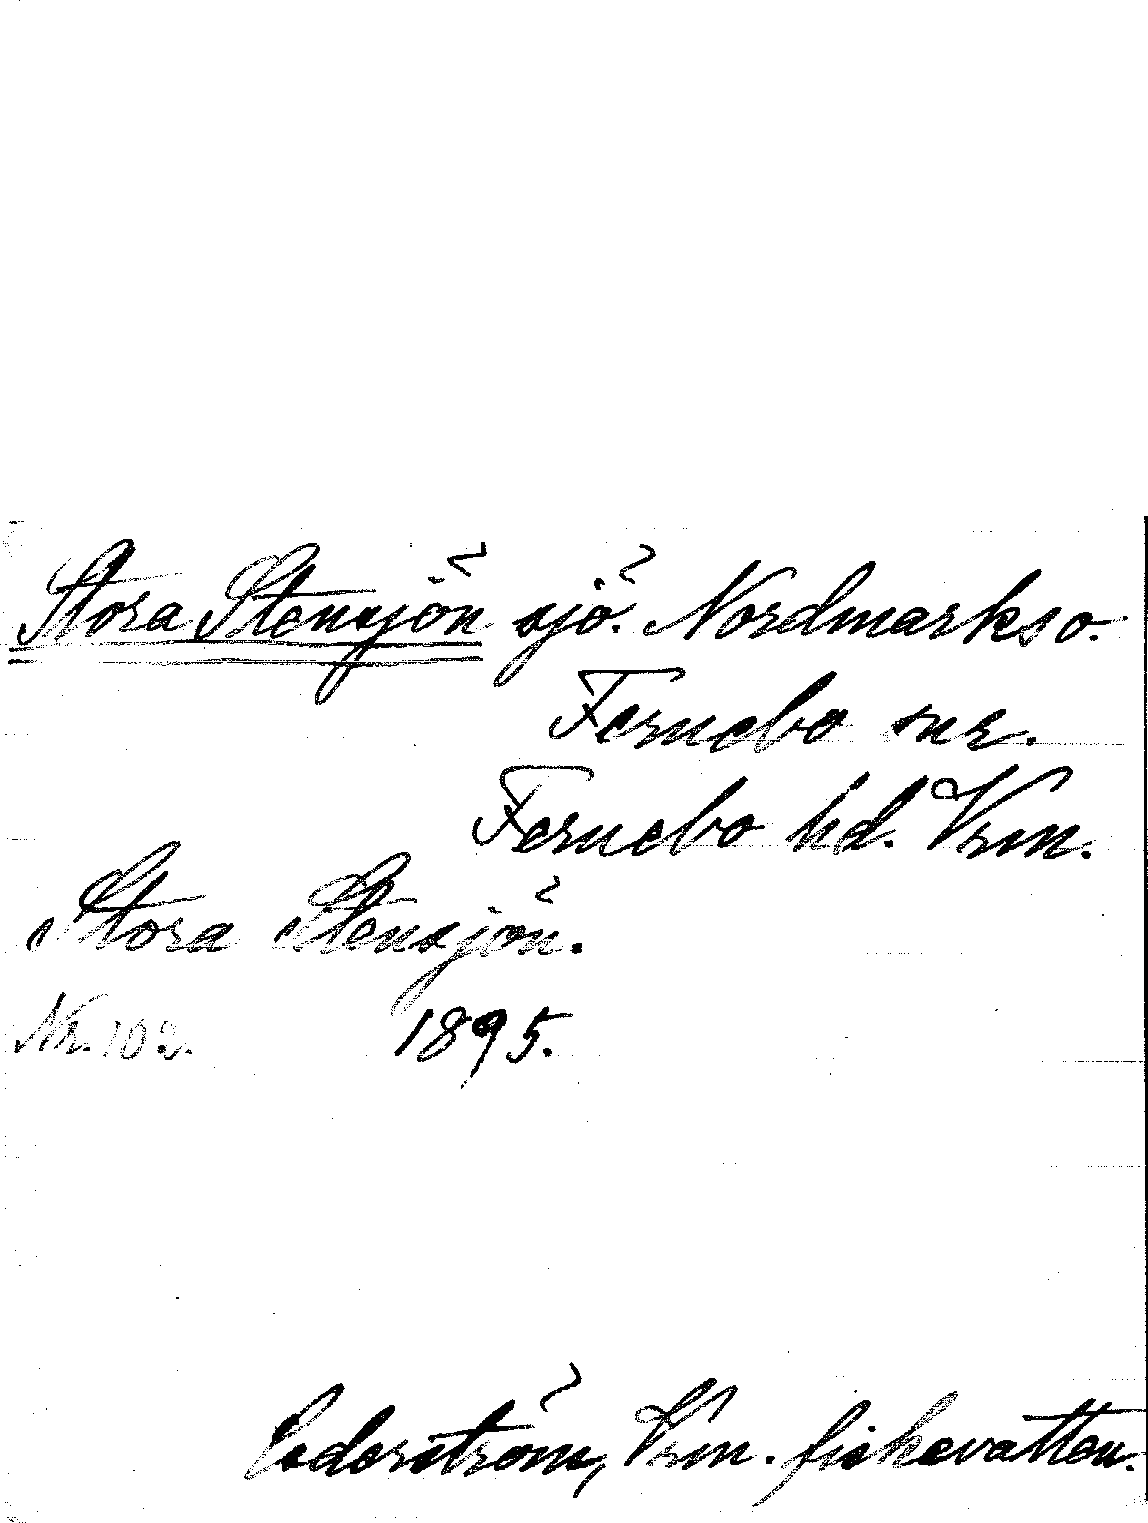 Stora Stensjön sjö. Nordmarks o.
Fernebo snr.
Fernebo hd. Vrm.
Stora Stensjön.
Nr. 102. 1895.
Cederström, Vrm. fiskevatten.